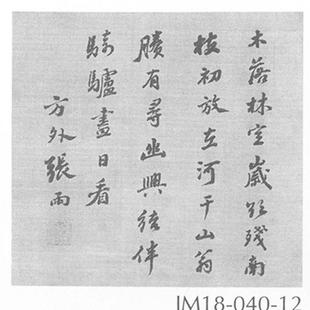 木落林空歲欲殘南
枝初放在河干山翁
賸有尋幽興結伴
騎驢盡日看
方外張雨
JM18-040-12